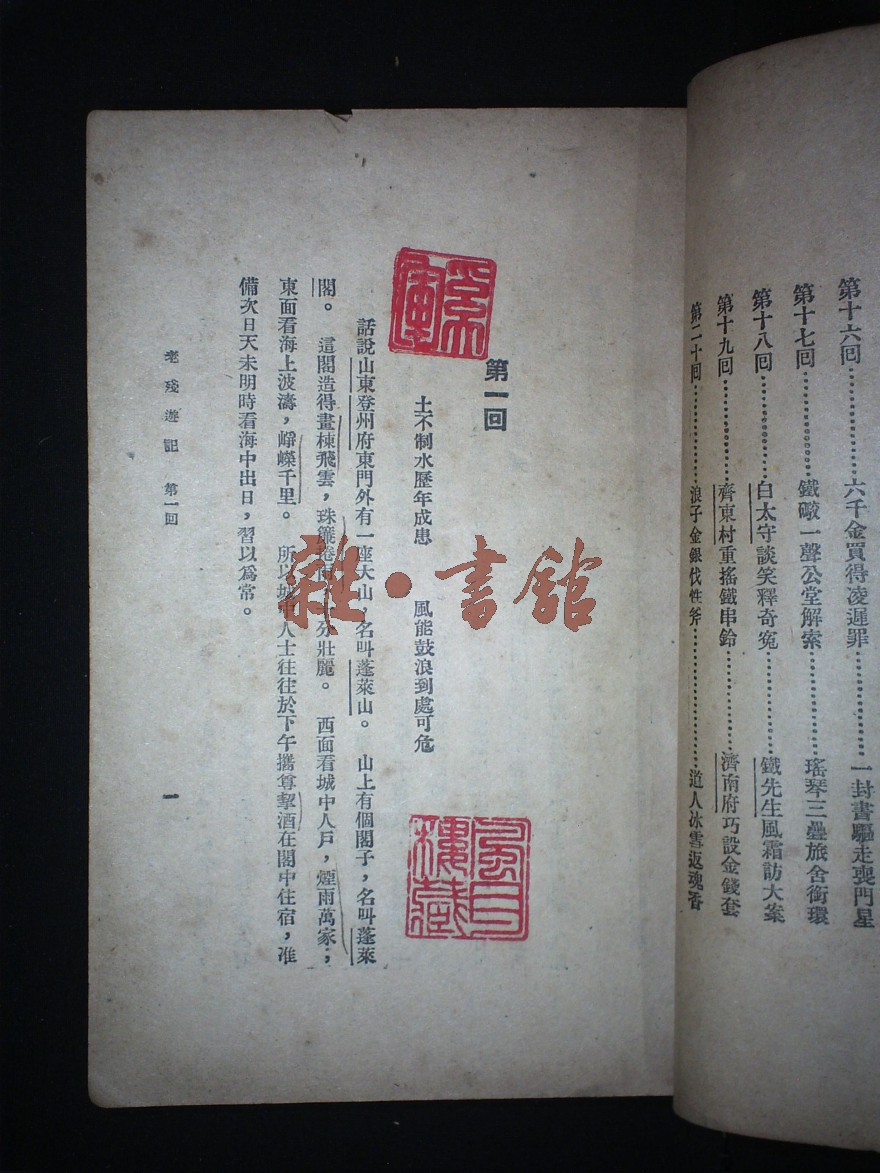 第十六回……………六千金買得凌遲罪……………一封書驅走喪門星
第十七回……………鐵礮一聲公堂解索……………瑤琴三疊旅舍銜環
第十八回……………白太守談笑釋奇冤……………鐵先生風霜訪大案
第十九回……………齊東村重搖鐵串鈴……………濟南府巧設金錢套
第二十回……………浪子金銀伐性斧……………道人冰雪返魂香
第一回
土不制水歷年成患　風能鼓浪到處可危
話說山東登州府東門外有一座大山，名叫蓬萊山。　山上有個閣子，名叫蓬萊
閣。　這閣造得畫棟飛雲，珠簾捲雨，十分壯麗。　西面看城中人戶，煙雨萬家；
東面看海上波濤，崢嶸千里。　所以城中人士往往於下午攜尊挈酒在閣中住宿，准
備次日天未明時看海中出日，習以爲常。
老殘遊記　第一回
一
雜·書舘